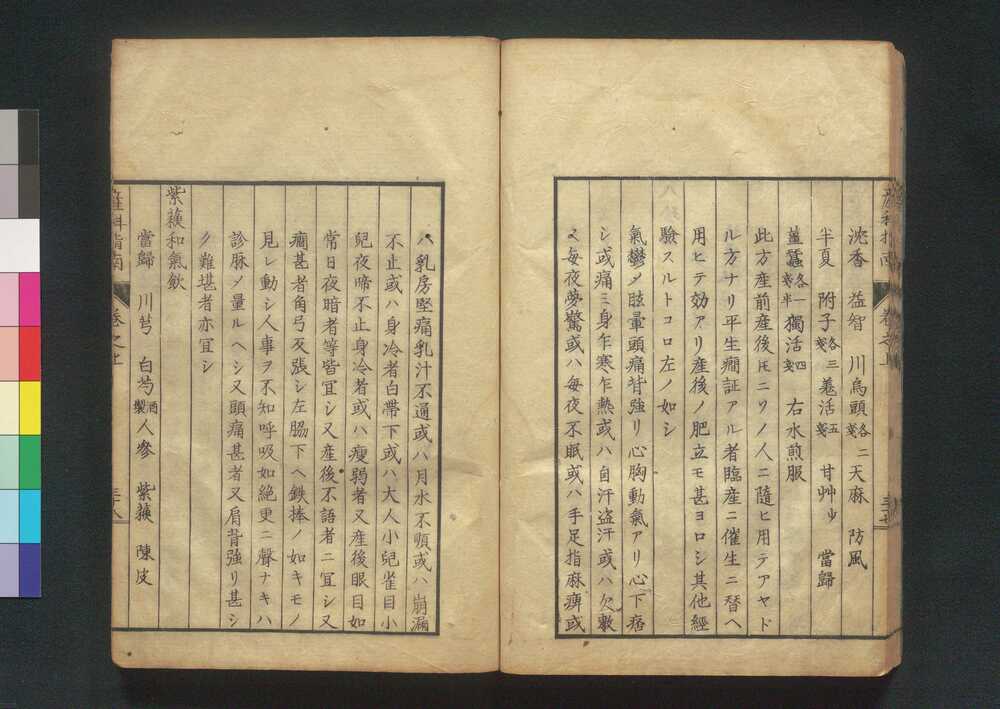 沈香 益智 川烏頭各二戔 天麻 防風
半夏 附子各三戔 羗活五戔 甘艸少 當歸
薑蚕各一戔半 獨活四戔 右水煎服
此方産前産後ﾄﾓニソノ人ニ隨ヒ用テアヤド
ル方ナリ平生癇証アル者臨産ニ催生ニ替ヘ
用ヒテ効アリ産後ノ肥立モ甚ヨロシ其他經
驗スルトコロ左ノ如シ
氣鬱〆眩暈頭痛背強リ心胸動氣アリ心下痞
シ或痛ミ身乍寒乍熱或ハ自汗盗汗或ハ欠敷
々毎夜夢驚或ハ毎夜不眠或ハ手足指麻痺或
ハ乳房堅痛乳汁不通或ハ月水不順或ハ崩漏
不止或ハ身冷者白帶下或ハ大人小兒雀目小
兒夜啼不止身冷者或ハ瘦弱者又産後眼目如
常日夜暗者等皆宜シ又産後不語者ニ宜シ又
癇甚者角弓反張シ左脇下ヘ鉄捧ノ如キモノ
見レ動シ人事ヲ不知呼吸如絶更ニ聲ナキハ
診脉〆量ルヘシ又頭痛甚者又肩背強リ甚シ
ク難堪者亦宜シ
紫蘓和氣飲
當歸 川芎 白芍酒製 人參 紫蘓 陳皮
産科指南 卷之上 三十八